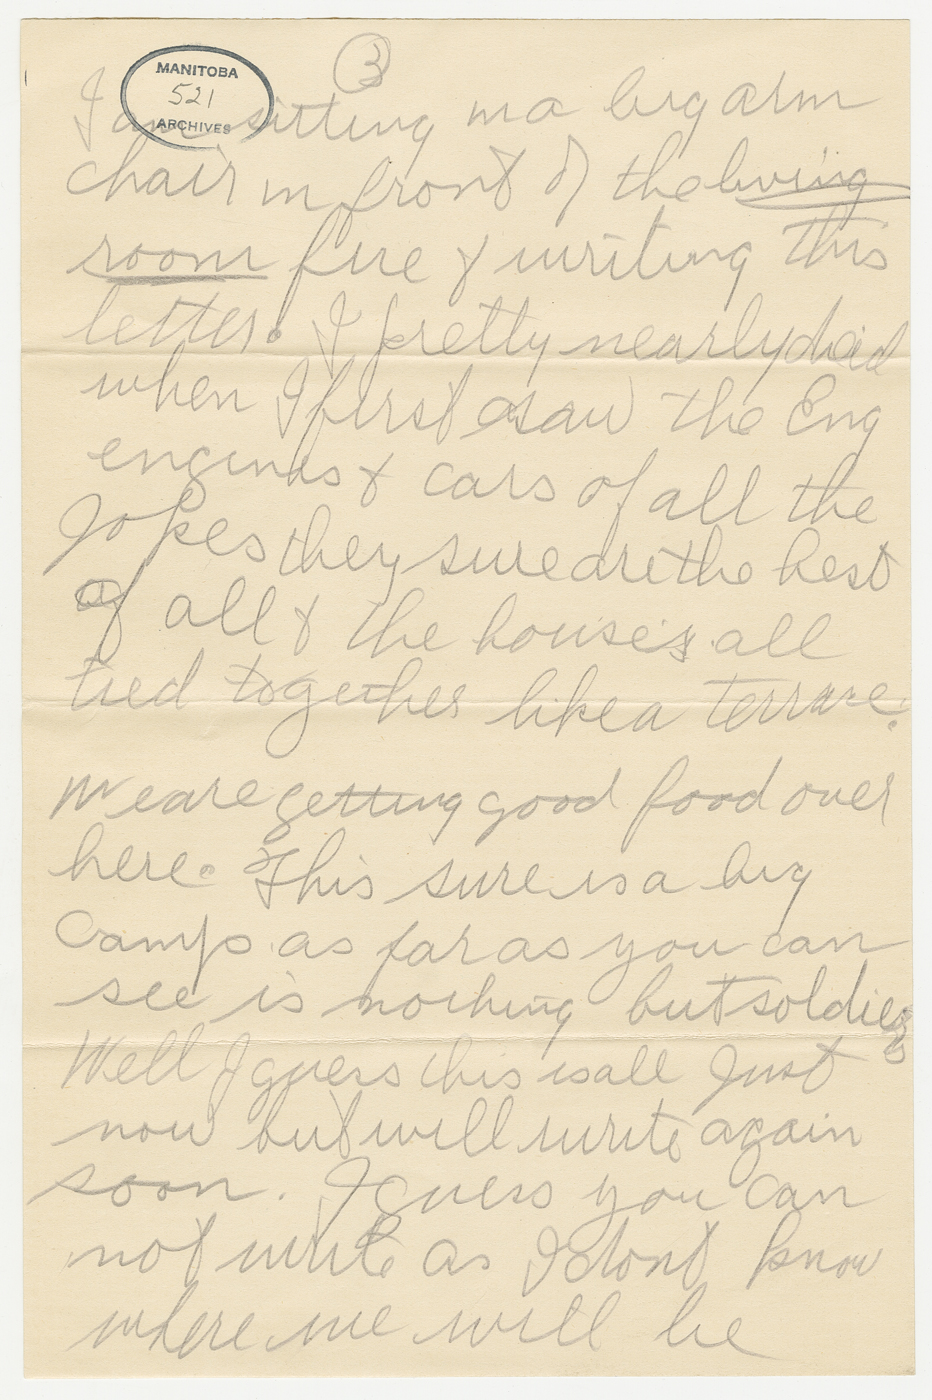 3
MANITOBA
521
ARCHIVES
I am sitting in a big arm
chair in front of the living
room fire & writing this
letter. I pretty nearly died
when I first saw the Eng
engines & cars of all the
Jokes they sure are the best
of all & the houses all
tied together like a terrace.
We are getting good food over
here. This sure is a big
Camp as far as you can
see is nothing but soldiers
Well I guess this is all Just
now but will write again
soon. I guess you can
not write as I dont know
where we will be